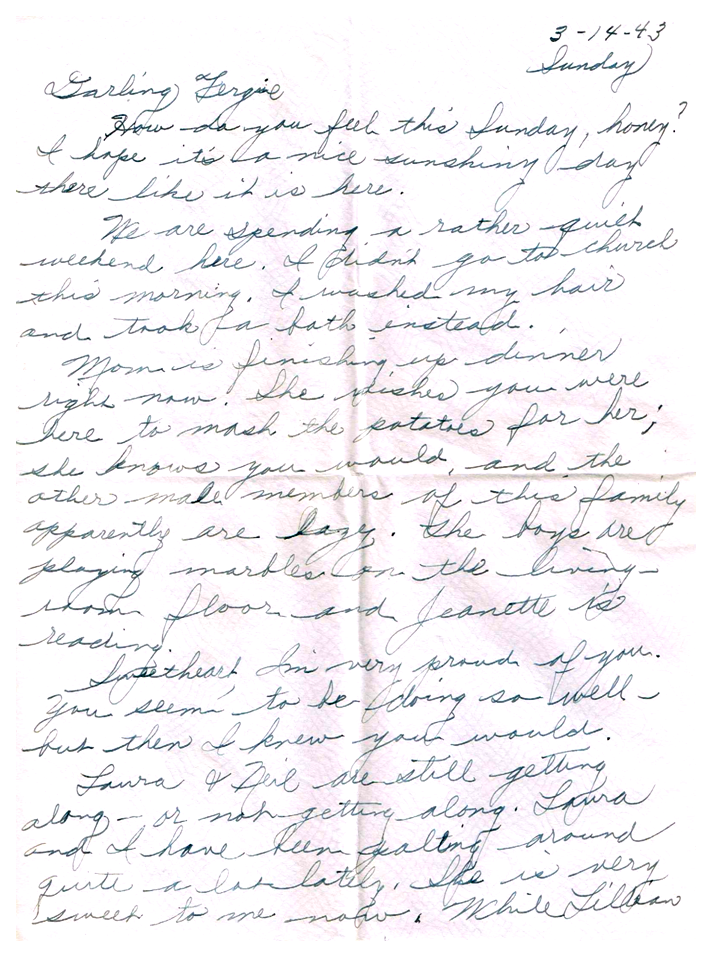 3-14-43
Sunday
Darling Fergie
How do you feel this Sunday, honey?
I hope it's a nice sunshiny day
there like it is here.
We are spending a rather quiet
weekend here. I didn't go to church
this morning. I washed my hair
and took a bath instead.
Mom is finishing up dinner
right now. She wishes you were
here to mash the potatoes for her;
she knows you would, and the
other male members of this family
apparently are lazy. The boys are
playing marbles on the living-
room floor and Jeanette is
reading.
Sweetheart, I'm very proud of you.
You seem to be doing so well -
but then I knew you would.
Laura & Neil are still getting
along - or not getting along. Laura
and I have been palling around
quite a lot lately. She is very
sweet to me now. While Lillian